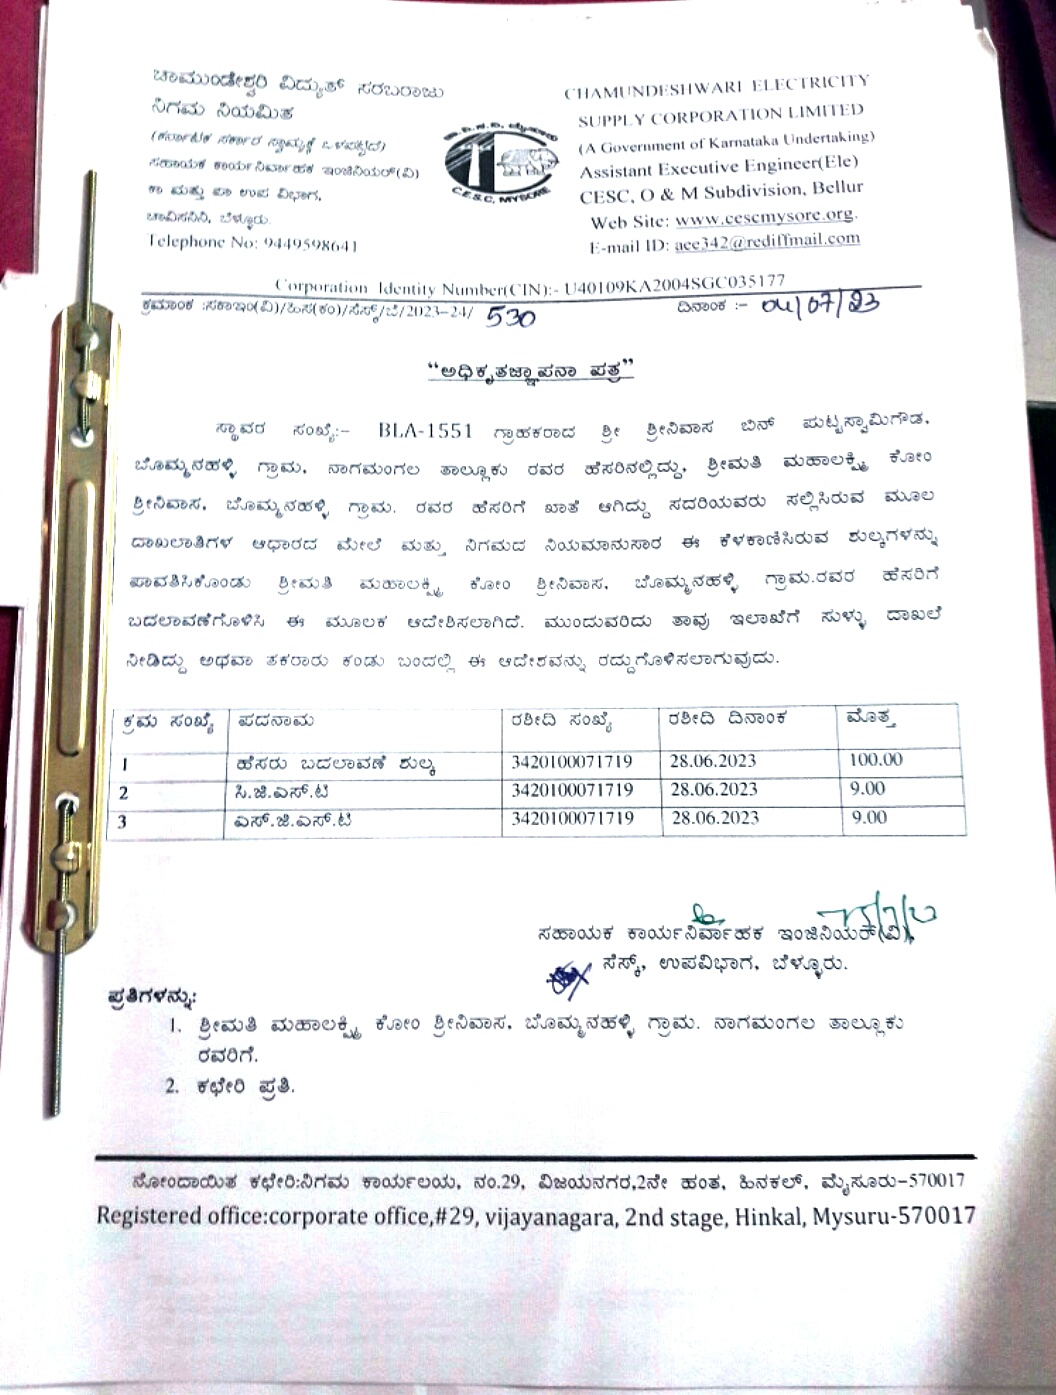 ಚಾಮುಂಡೇಶ್ವರಿ ವಿದ್ಯುತ್ ಸರಬರಾಜು
ನಿಗಮ ನಿಯಮಿತ
(ಕರ್ನಾಟಕ ಸರ್ಕಾರ ಸ್ವಾಮ್ಯಕ್ಕೆ ಒಳಪಟ್ಟಿದೆ)
ಸಹಾಯಕ ಕಾರ್ಯನಿರ್ವಾಹಕ ಇಂಜಿನಿಯರ್(ವಿ)
ಕಾ ಮತ್ತು ಪಾ ಉಪ ವಿಭಾಗ,
ಚಾವಿಸನಿನಿ, ಬೆಳ್ಳೂರು.
Telephone No: 9449598641
C.E.S.C, MYSORE
CHAMUNDESHWARI ELECTRICITY
SUPPLY CORPORATION LIMITED
(A Government of Karnataka Undertaking)
Assistant Executive Engineer(Ele)
CESC, O & M Subdivision, Bellur
Web Site: www.cescmysore.org.
E-mail ID: aee342@rediffmail.com
Corporation Identity Number(CIN):- U40109KA2004SGC035177
ಕ್ರಮಾಂಕ :ಸಕಾಇಂ(ವಿ)/ಹಿಸ(ಕಂ)/ಸೆಸ್ಕ್/ಬೆ/2023-24/ 530 ದಿನಾಂಕ :- 04/07/23
“ಅಧಿಕೃತಜ್ಞಾಪನಾ ಪತ್ರ”
ಸ್ಥಾವರ ಸಂಖ್ಯೆ:- BLA-1551 ಗ್ರಾಹಕರಾದ ಶ್ರೀ ಶ್ರೀನಿವಾಸ ಬಿನ್ ಪುಟ್ಟಸ್ವಾಮಿಗೌಡ,
ಬೊಮ್ಮನಹಳ್ಳಿ ಗ್ರಾಮ, ನಾಗಮಂಗಲ ತಾಲ್ಲೂಕು ರವರ ಹೆಸರಿನಲ್ಲಿದ್ದು, ಶ್ರೀಮತಿ ಮಹಾಲಕ್ಷ್ಮಿ ಕೋಂ
ಶ್ರೀನಿವಾಸ, ಬೊಮ್ಮನಹಳ್ಳಿ ಗ್ರಾಮ. ರವರ ಹೆಸರಿಗೆ ಖಾತೆ ಆಗಿದ್ದು ಸದರಿಯವರು ಸಲ್ಲಿಸಿರುವ ಮೂಲ
ದಾಖಲಾತಿಗಳ ಆಧಾರದ ಮೇಲೆ ಮತ್ತು ನಿಗಮದ ನಿಯಮಾನುಸಾರ ಈ ಕೆಳಕಾಣಿಸಿರುವ ಶುಲ್ಕಗಳನ್ನು
ಪಾವತಿಸಿಕೊಂಡು ಶ್ರೀಮತಿ ಮಹಾಲಕ್ಷ್ಮಿ ಕೋಂ ಶ್ರೀನಿವಾಸ, ಬೊಮ್ಮನಹಳ್ಳಿ ಗ್ರಾಮ.ರವರ ಹೆಸರಿಗೆ
ಬದಲಾವಣೆಗೊಳಿಸಿ ಈ ಮೂಲಕ ಆದೇಶಿಸಲಾಗಿದೆ. ಮುಂದುವರಿದು ತಾವು ಇಲಾಖೆಗೆ ಸುಳ್ಳು ದಾಖಲೆ
ನೀಡಿದ್ದು ಅಥವಾ ತಕರಾರು ಕಂಡು ಬಂದಲ್ಲಿ ಈ ಆದೇಶವನ್ನು ರದ್ದುಗೊಳಿಸಲಾಗುವುದು.
ಕ್ರಮ ಸಂಖ್ಯೆ ಪದನಾಮ ರಶೀದಿ ಸಂಖ್ಯೆ ರಶೀದಿ ದಿನಾಂಕ ಮೊತ್ತ
1 ಹೆಸರು ಬದಲಾವಣೆ ಶುಲ್ಕ 3420100071719 28.06.2023 100.00
2 ಸಿ.ಜಿ.ಎಸ್.ಟಿ 3420100071719 28.06.2023 9.00
3 ಎಸ್.ಜಿ.ಎಸ್.ಟಿ 3420100071719 28.06.2023 9.00
ಸಹಾಯಕ ಕಾರ್ಯನಿರ್ವಾಹಕ ಇಂಜಿನಿಯರ್(ವಿ),
ಸೆಸ್ಕ್, ಉಪವಿಭಾಗ, ಬೆಳ್ಳೂರು.
ಪ್ರತಿಗಳನ್ನು:
1. ಶ್ರೀಮತಿ ಮಹಾಲಕ್ಷ್ಮಿ ಕೋಂ ಶ್ರೀನಿವಾಸ, ಬೊಮ್ಮನಹಳ್ಳಿ ಗ್ರಾಮ. ನಾಗಮಂಗಲ ತಾಲ್ಲೂಕು
ರವರಿಗೆ.
2. ಕಛೇರಿ ಪ್ರತಿ.
ನೋಂದಾಯಿತ ಕಛೇರಿ:ನಿಗಮ ಕಾರ್ಯಲಯ, ನಂ.29, ವಿಜಯನಗರ,2ನೇ ಹಂತ, ಹಿನಕಲ್, ಮೈಸೂರು-570017
Registered office:corporate office,#29, vijayanagara, 2nd stage, Hinkal, Mysuru-570017